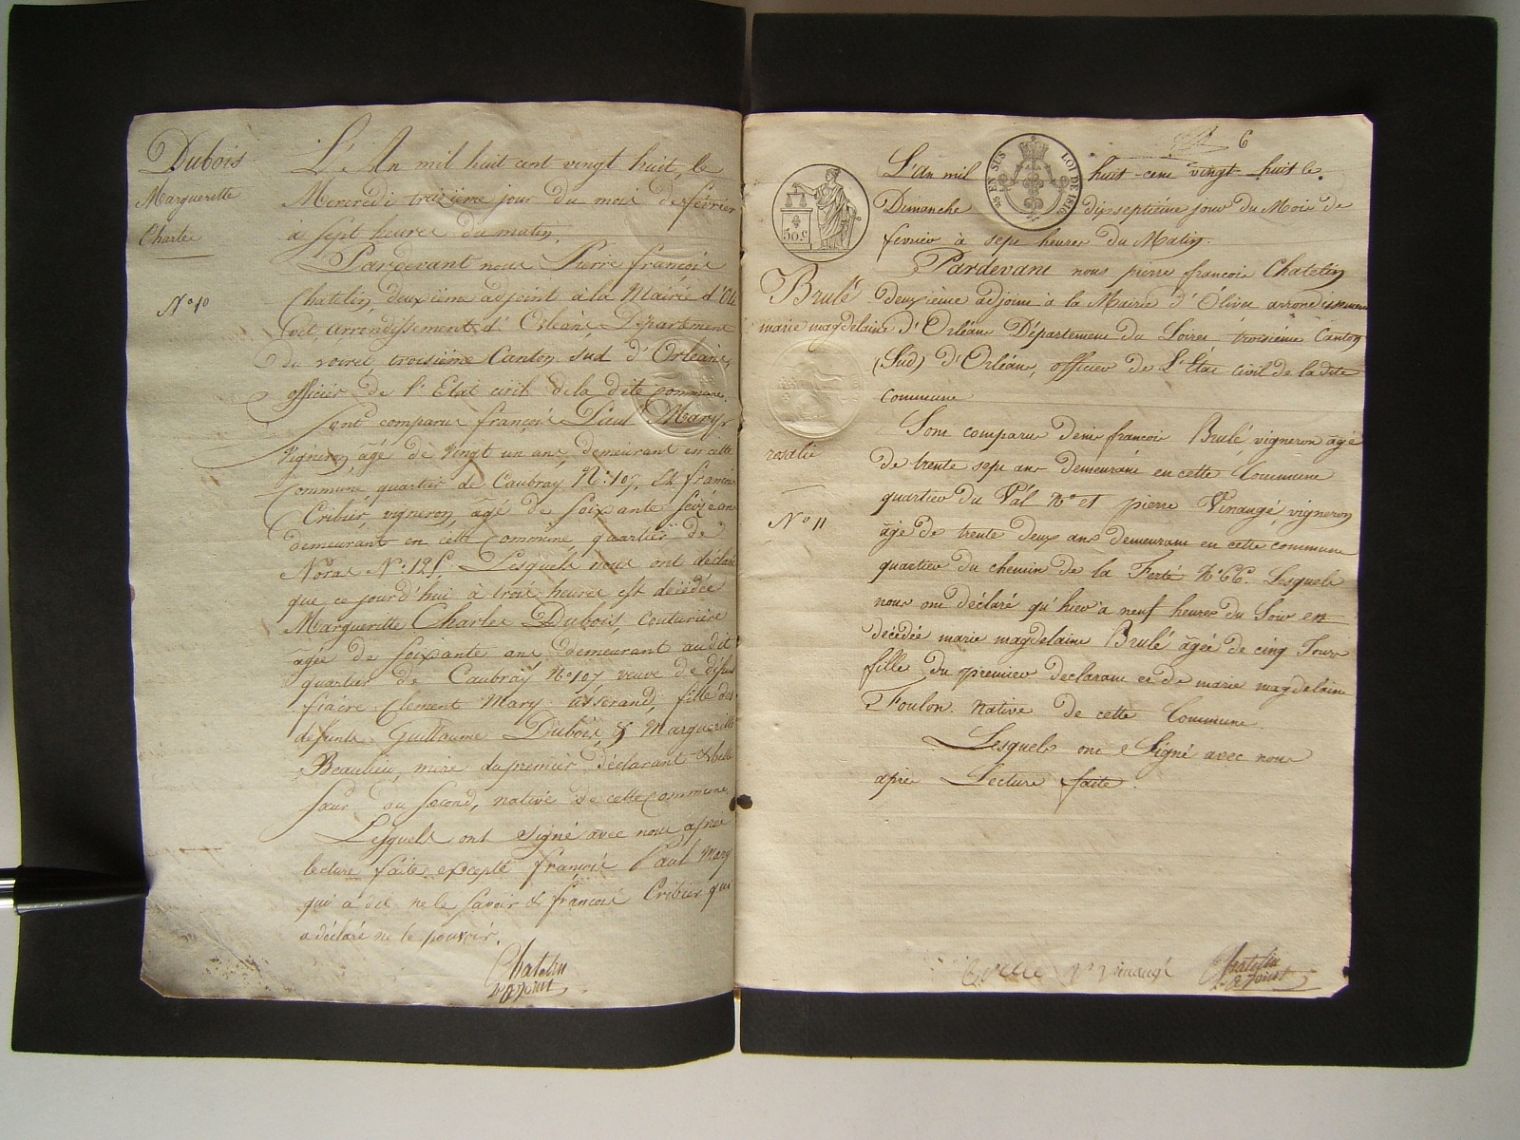 Dubois
Marguerite
Charles
N° 10
L'An mil huit cent vingt huit, le
Mercredi treizieme jour du mois de fevrier
à sept heures du matin,
Pardevant nous Pierre françois
Chatelin, deuxième adjoint à la Mairie d'Oli
vet, arrondissement d'Orléans, Département
du Loiret, troisième Canton Sud d'Orléans,
officier de l'Etat civil de la dite commune.
Sont comparus françois Paul Mary
Vigneron, âgé de Vingt un ans, demeurant en cette
Commune, quartier de Caubray, N°: 107, Et françois
Cribier, vigneron, âgé de Soixante Seize ans
demeurant en cette commune, quartier de
N°: 125. Lesquels nous ont déclaré
que ce jourd'hui à trois heures est décédée
Marguerite Charles Dubois, Couturière
âgée de Soixante ans demeurant audit
quartier de Caubray N° 107 veuve de défunt
fiacre Clement Mary tisserand, fille des
defunts Guillaume Dubois, & Marguerite
Beaulieu, mère du premier déclarant & belle
sœur du second, native de cette Commune
Lesquels ont signé avec nous après
lecture faite, excepté françois Paul Mary
qui a dit ne le savoir & françois Cribier qui
a déclaré ne le pouvoir.
Chatelin
adjoint
6
50 c
EN SUS
LOI DE 1816
Brulé
marie magdelaine
rosalie
N° 11
L'An mil huit-cent vingt-huit le
Dimanche dixseptième jour du Mois de
fevrier à sept heures du Matin.
Pardevant nous pierre francois Chatelin
deuxième adjoint à la Mairie d'Olivet arrondissement
d'Orléans Département du Loiret, troisième Canton
(Sud) d'Orléans, officier de L'Etat civil de la dite
commune
Sont comparus denis francois Brulé, vigneron âgé
de trente sept ans demeurant en cette Commune
quartier du Val N° et pierre Vinaugé, vigneron
âgé de trente deux ans demeurant en cette commune
quartier du chemin de la Ferté N° 66. Lesquels
nous ont déclaré qu'hier à neuf heures du Soir est
décédée marie magdelaine Brulé âgée de cinq Jours
fille du premier declarant et de marie magdelaine
Foulon native de cette Commune
Lesquels ont signé avec nous
après Lecture faite.
Vinaugé
Chatelin
adjoint